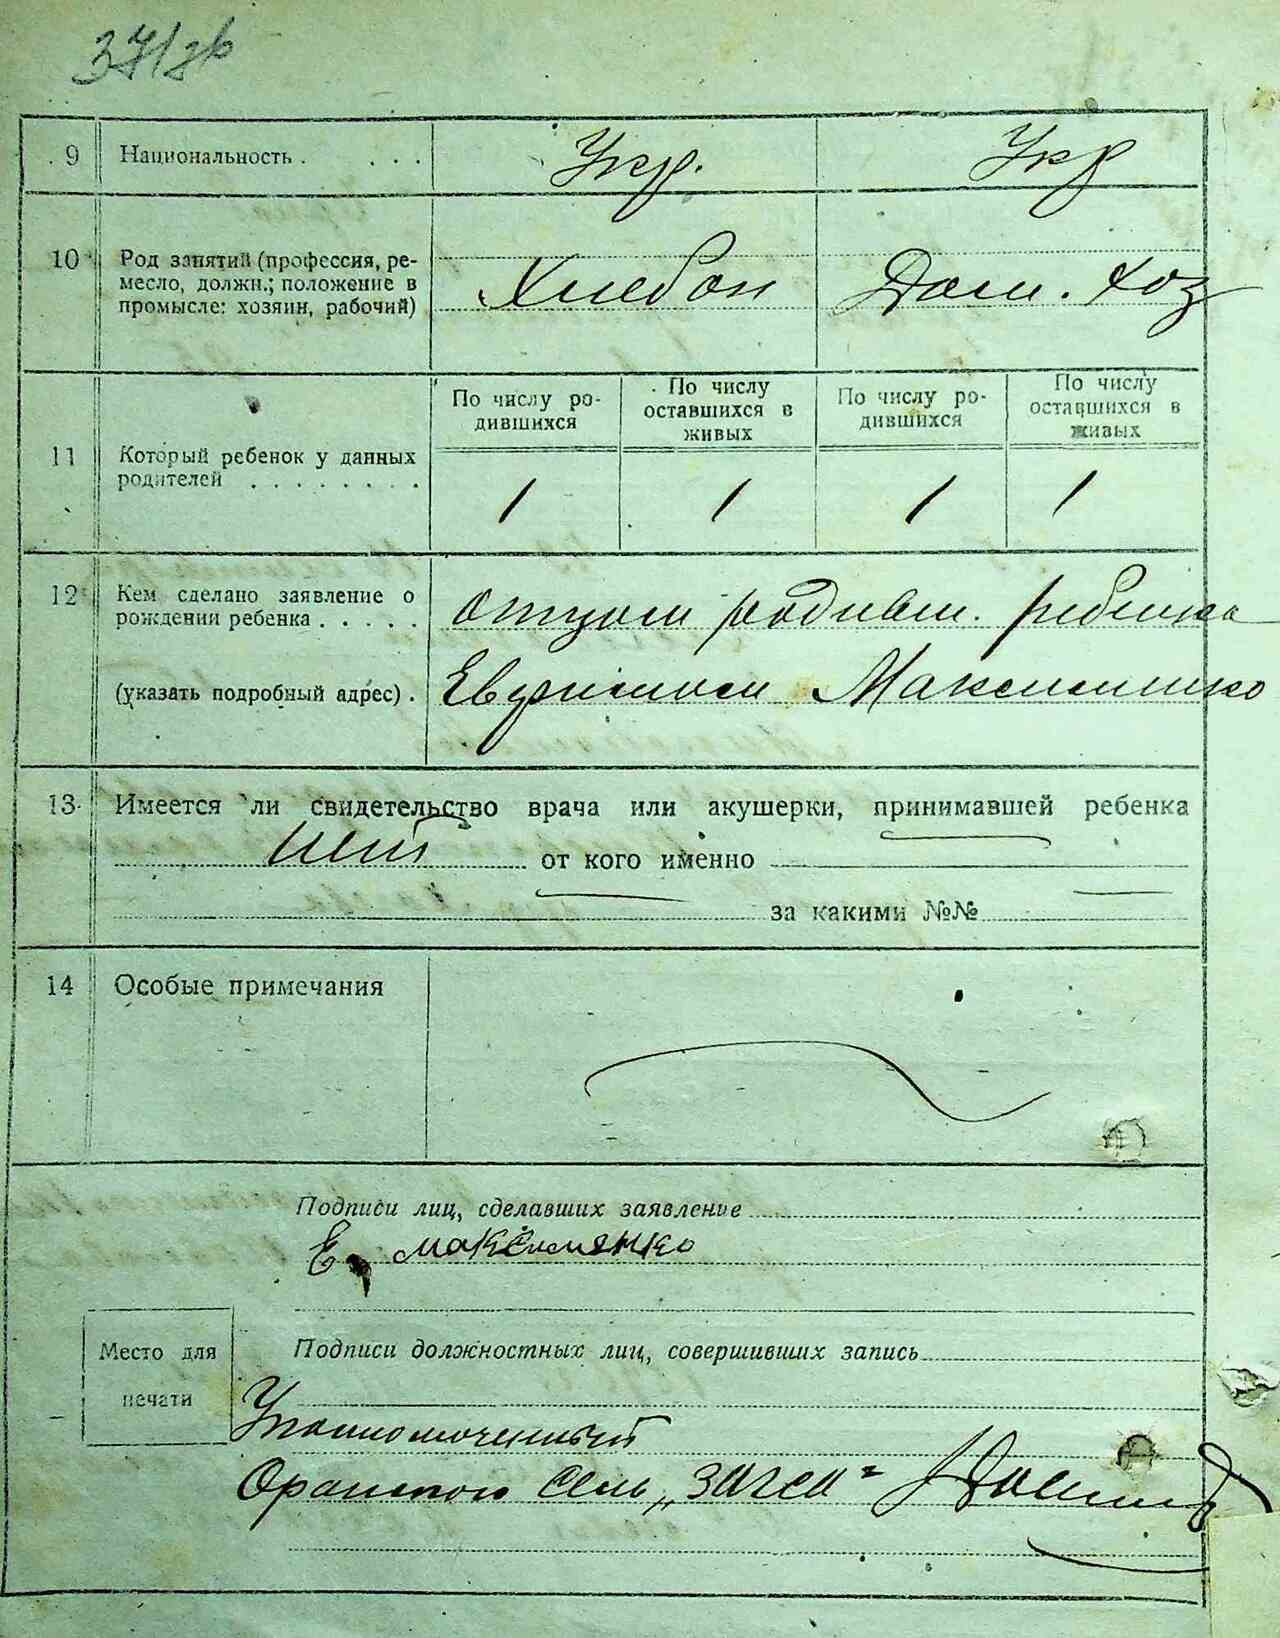 9 Национальность . . . . Укр. Укр
10 Род занятий (профессия, ре-
месло, должн.; положение в
промысле: хозяин, рабочий)
Хлебоп Дом. хоз
11 Который ребенок у данных
родителей . . . . . . . .
По числу ро-
дившихся
По числу
оставшихся в
живых
По числу ро-
дившихся
По числу
оставшихся в
живых
1 1 1 1
12 Кем сделано заявление о
рождении ребенка . . . . .
(указать подробный адрес) .
отцом родивш. ребенка
Максименко
13 Имеется ли свидетельство врача или акушерки, принимавшей ребенка
нет от кого именно
за какими №№
14 Особые примечания
Подписи лиц, сделавших заявление
Е. Максименко
Место для
печати
Подписи должностных лиц, совершивших запись
Уполномоченный
Оранского Сель „Загса"